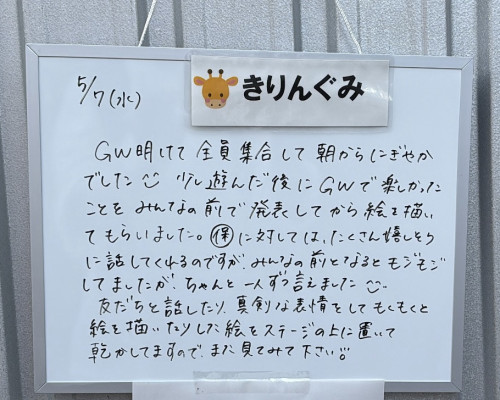 きりんぐみ
5/7(水)
GW明けて全員集合して朝からにぎやか
でした 少し遊んだ後にGWで楽しかった
ことをみんなの前で発表してから絵を描い
てもらいました。保に対しては、たくさん嬉しそう
に話してくれるのですが、みんなの前となるとモジモジ
してましたが、ちゃんと一人ずつ言えました
友だちと話したり、真剣な表情をしてもくもくと
絵を描いたりした絵をステージの上に置いて
乾かしてますので、また見てみて下さい。